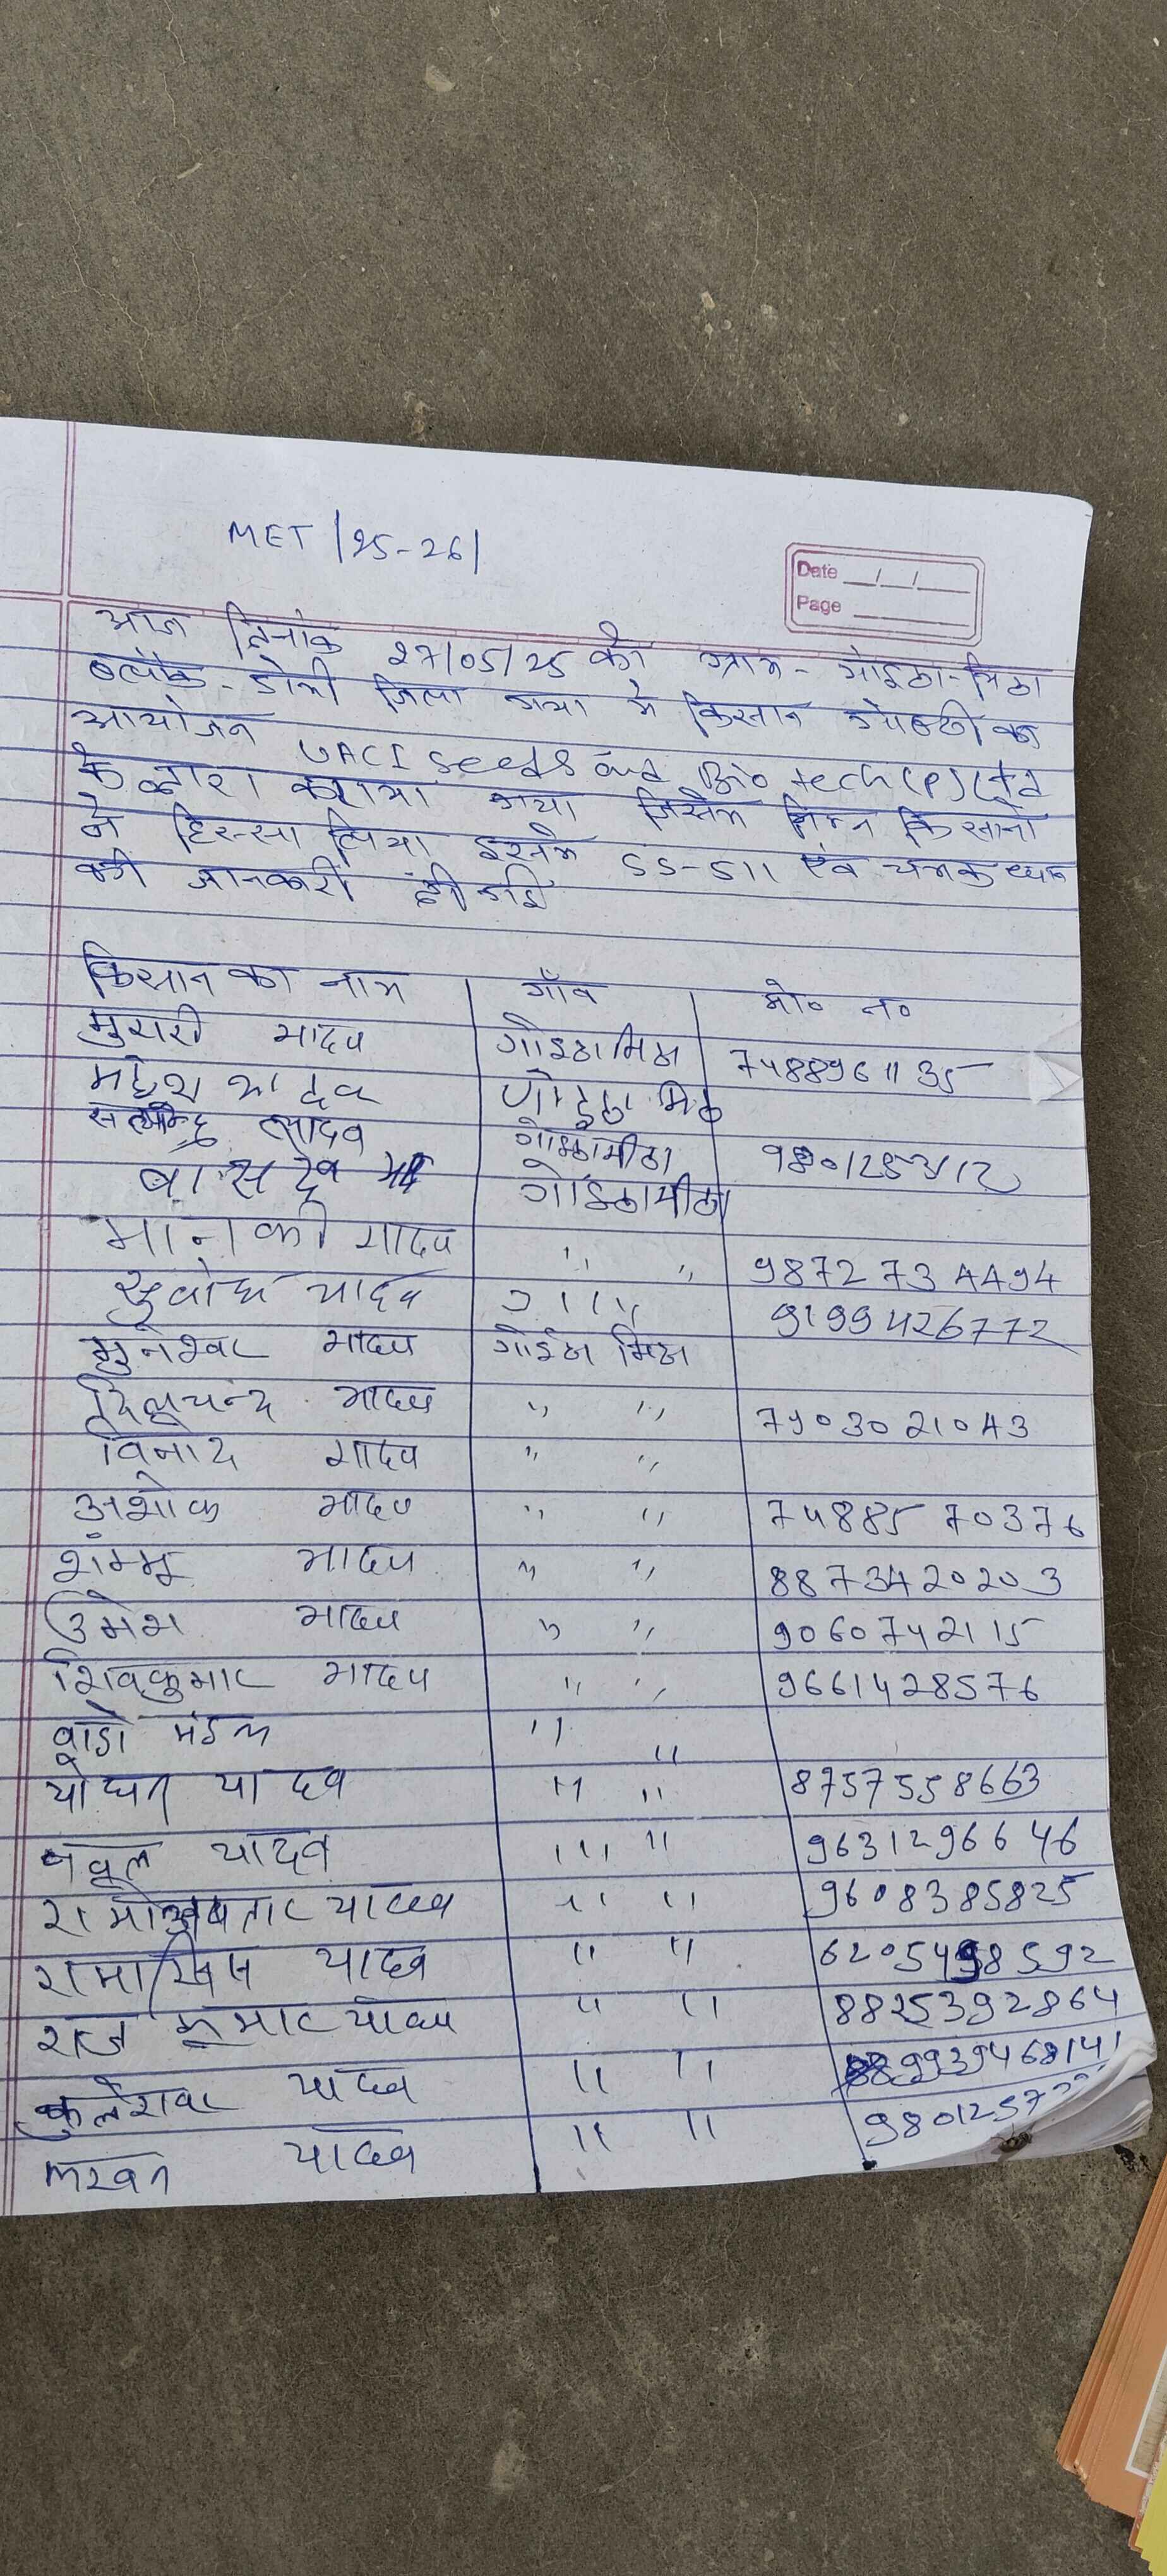 MET |25-26|
Date __/__/__
Page
आज दिनांक 27/05/25 को ग्राम - गोइठा-मिठा
ब्लॉक - डोभी जिला गया मे किसान गोष्ठी का
आयोजन UACI Seeds and Bio tech (P) Ltd
के द्वारा कराया गया जिसमे निम्न किसानो
ने हिस्सा लिया इसमे SS-511 एवं चमक धान
की जानकारी दी गई
किसान का नाम गाँव मो० न०
मुरारी यादव गोइठा मिठा 7488961135
महेश यादव गोइठा मिठा
सत्येन्द्र यादव गोइठामीठा
बासदेव गोइठामीठा
मानकी यादव " " 9872734494
सुवोध यादव 9199426772
मुनेश्वर यादव गोईठा मिठा
यादव " " 7903021043
विनोद यादव " "
अशोक यादव " " 7488570376
शंम्भू यादव " " 8873420203
उमेश यादव " " 9060742115
शिवकुमार यादव " " 9661428576
मंडल " "
योधन यादव " " 8757558663
नवूल यादव " " 9631296646
यादव " " 9608385825
यादव " " 6205498592
राज कुमार यादव " " 8825392864
कुलेशवर यादव " "
लखन यादव " " 9801257